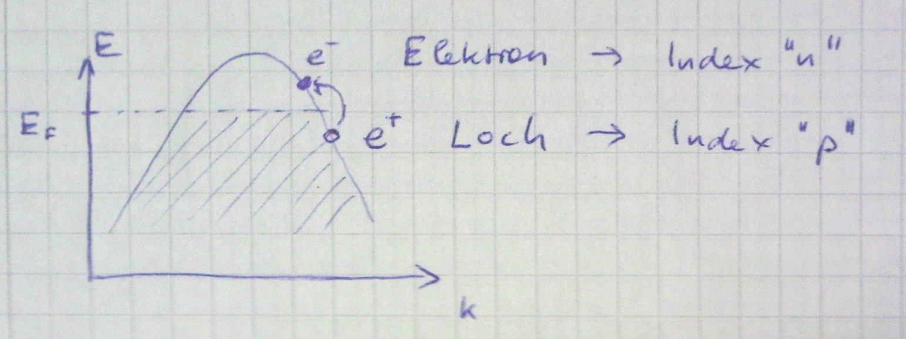 E
e⁻ Elektron → Index "n"
E_F
e⁺ Loch → Index "p"
k